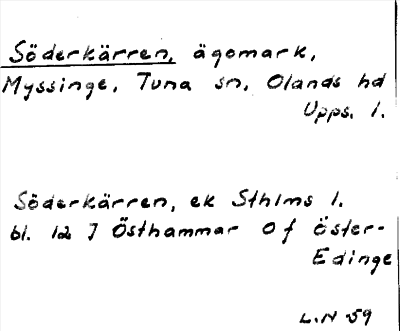 Söderkärren, ägomark,
Myssinge, Tuna sn, Olands hd
Upps. l.
Söderkärren, ek Sthlms l.
bl. 12 J Östhammar Of Öster-
Edinge
L.N 59